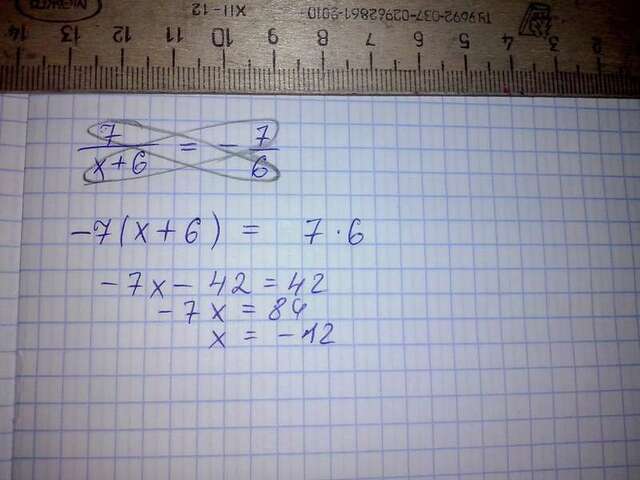 ТУ9692-037-02962861-2010 XII-12
14 13 12 11 10 9 8 7 6 5 4 3 2
7/(x+6) = - 7/6
-7(x+6) = 7·6
-7x - 42 = 42
-7x = 84
x = -12